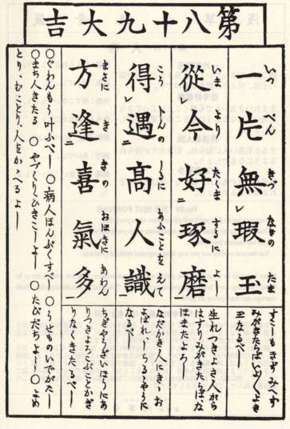 第八十九大吉
一片無瑕玉
いつぺんきづなきのたま
すこしもきずみへず
みがきたらばいよ〳〵よき
玉なるべし
從今好琢磨
いまよりたくまするによし
生れつきよき人ながら
みがきたらばな
ほまたよろし
得遇高人識
こうじんのしるにあふことをえて
なだかき人にきゝお
よばれしらるゝやうに
なるべし
方逢喜氣多
まさにききのおほきにあわん
ちぎやうざいほうにあ
りつきよろこぶことかぎ
りなくきたるべし
○ぐわんもう叶ふべし ○病人ほんぷくすべし ○うせものいでがたし
○まち人きたる ○やづくりひきこしよし ○たびだちよし ○よめ
とり、むことり、人をかゝへるよし